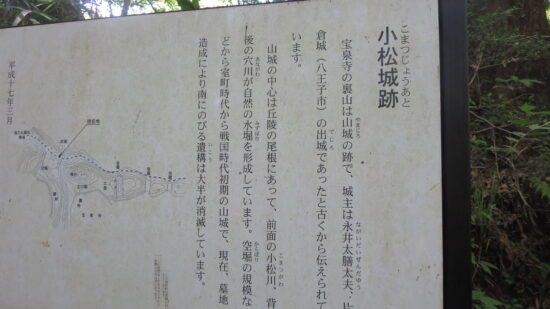 こまつじょうあと
小松城跡
宝泉寺の裏山は山城の跡で、城主は永井大膳太夫、片
やまじろ
ながいだいぜんだゆう
倉城（八王子市）の出城であったと古くから伝えられて
でじろ
います。
山城の中心は丘陵の尾根にあって、前面の小松川、背
こまつがわ
後の穴川が自然の水堀を形成しています。空堀の規模な
あながわ
みずぼり
からぼり
どから室町時代から戦国時代初期の山城で、現在、墓地
造成により南にのびる遺構は大半が消滅しています。
いこう
平成十七年三月